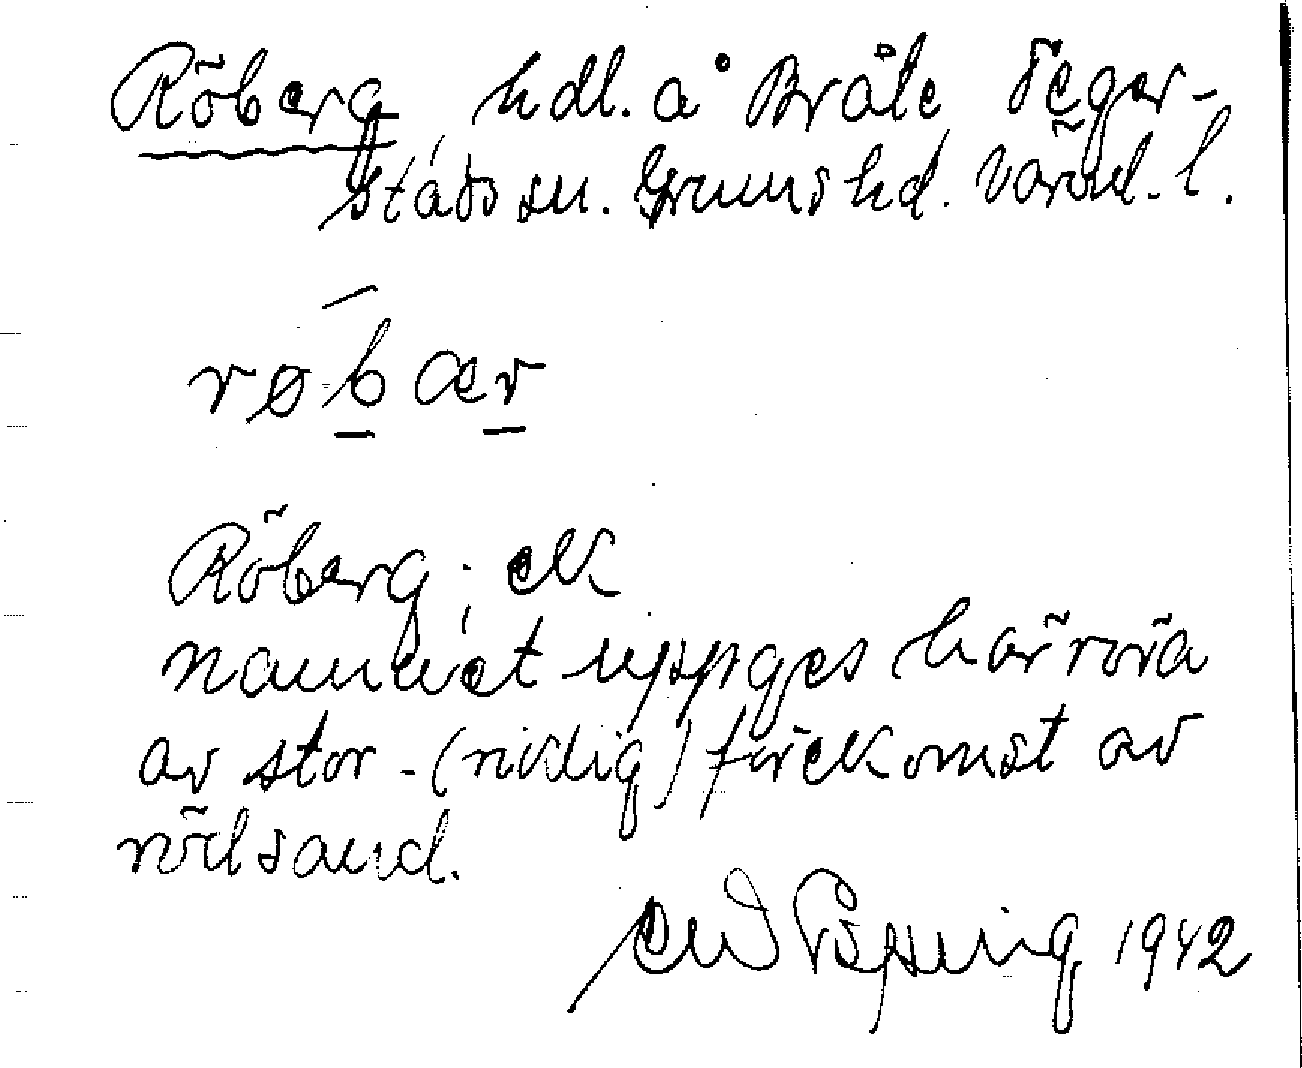 Röberg, hdl. å Bråte Seger-
stads sn. Grums hd. Värml. l.
røbær
Röberg; ek
namnet uppges härröra
av stor - (riklig) förekomst av
rödsand.
1942